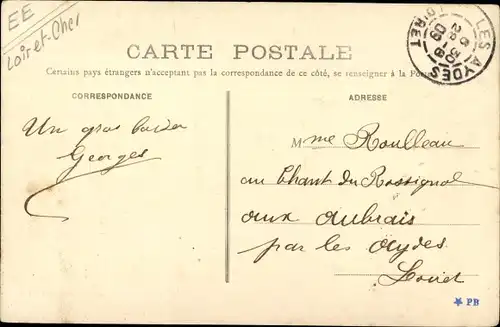 EE
Loir-et-Cher
CARTE POSTALE
Certains pays étrangers n'acceptent pas la correspondance de ce côté, se renseigner à la Poste
CORRESPONDANCE
ADRESSE
LES AYDES
LOIRET
Un gros baiser
Georges
Mme Roulleau
au Chant du Rossignol
aux Aubrais
par les Aydes
Loiret
PB